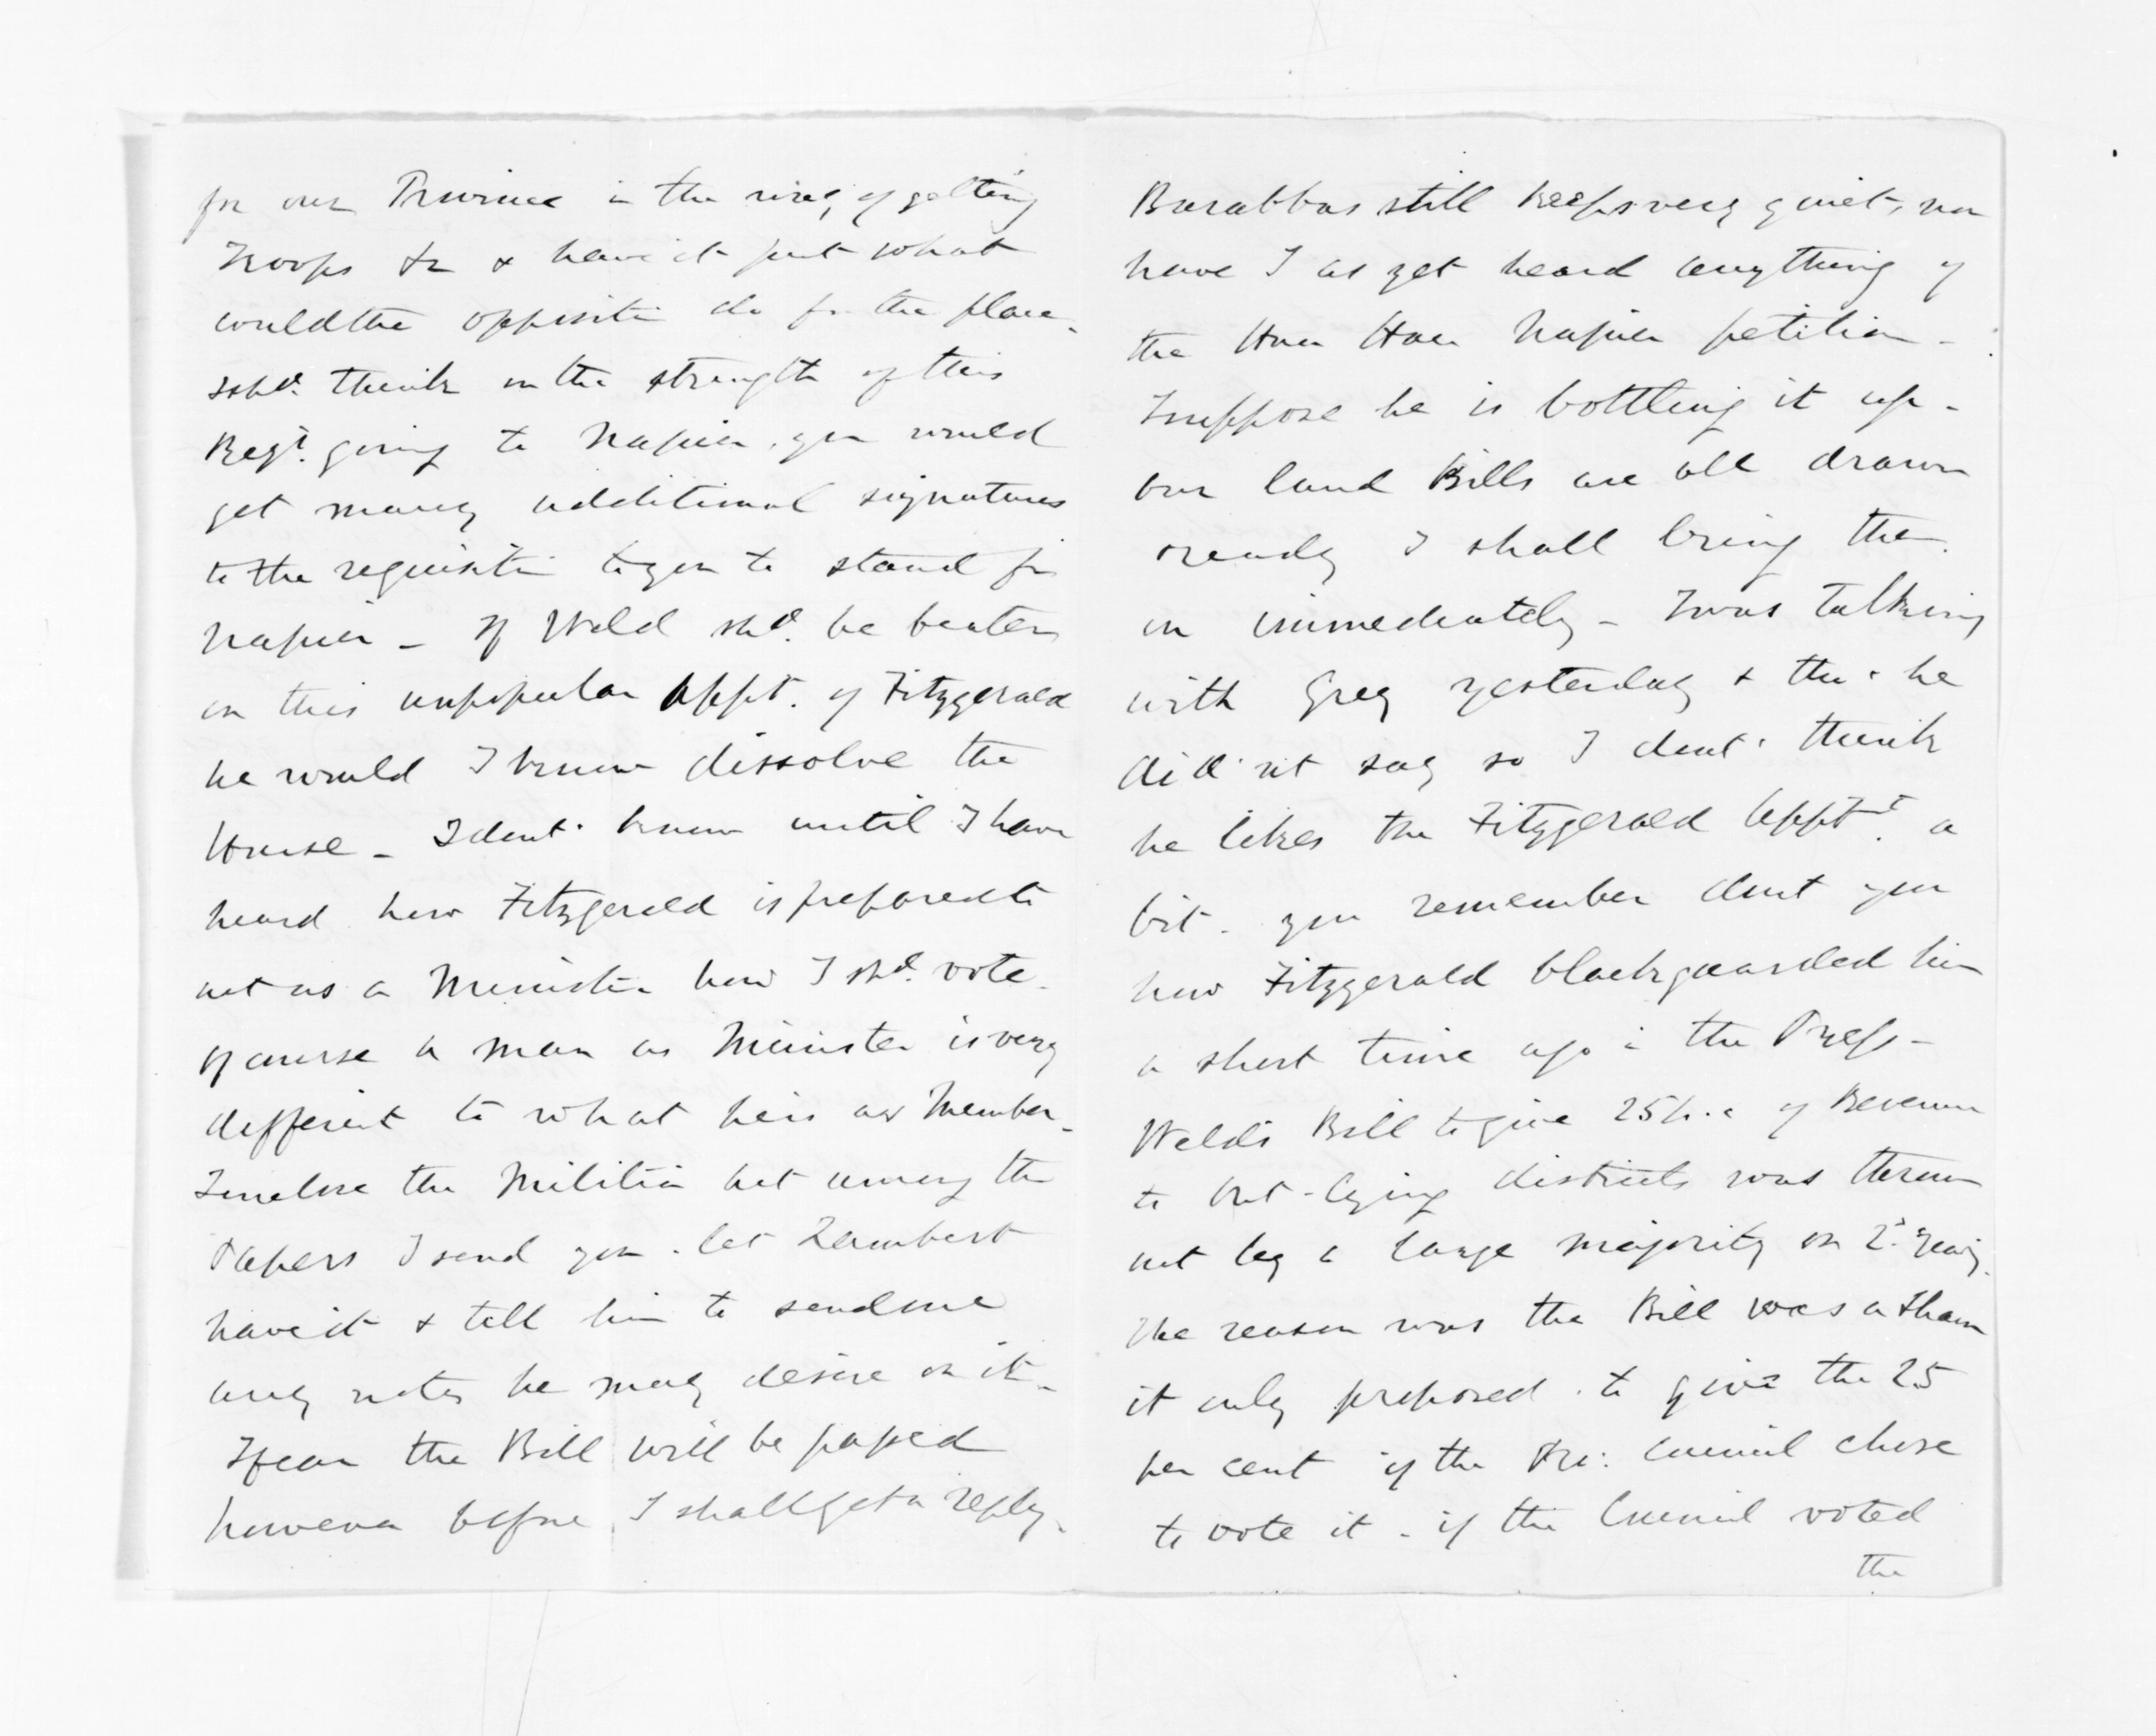 for our Province in the way of getting
Troops &c & have it put what
could the opposite do for the place.
I shd. think on the strength of this
Regt. going to Napier, you would
get many additional signatures
to the requisiti to you to stand for
Napier - If Weld shd. be beaten
on this unpopular Appt. of Fitzgerald
he would I know dissolve the
House - I dont know until I have
heard how Fitzgerald is prepared to
act as a Minister how I shd. vote.
Of course a man as Minister is very
different to what he is as Member.
I enclose the Militia Act among the
Papers I send you. let Lambert
have it & tell him to send me
any notes he may desire on it -
I fear the Bill will be passed
however before I shall get a reply.
Barabbas still keeps very quiet, nor
have I as yet heard anything of
the Hau Hau Napier petition -
I suppose he is bottling it up -
Our land Bills are all drawn
ready I shall bring them
in immediately - I was talking
with Grey yesterday & tho' he
did'nt say so I dont think
he likes the Fitzgerald Apptt. a
bit - you remember dont you
how Fitzgerald blackguarded him
a short time ago in the Press -
Weld's Bill to give 25 p.c of Revenue
to Out-lying districts was thrown
out by a large majority on 2d. readg.
The reason was the Bill was a sham
it only proposed to give the 25
per cent if the Pro: Council chose
to vote it - if the Council voted
the